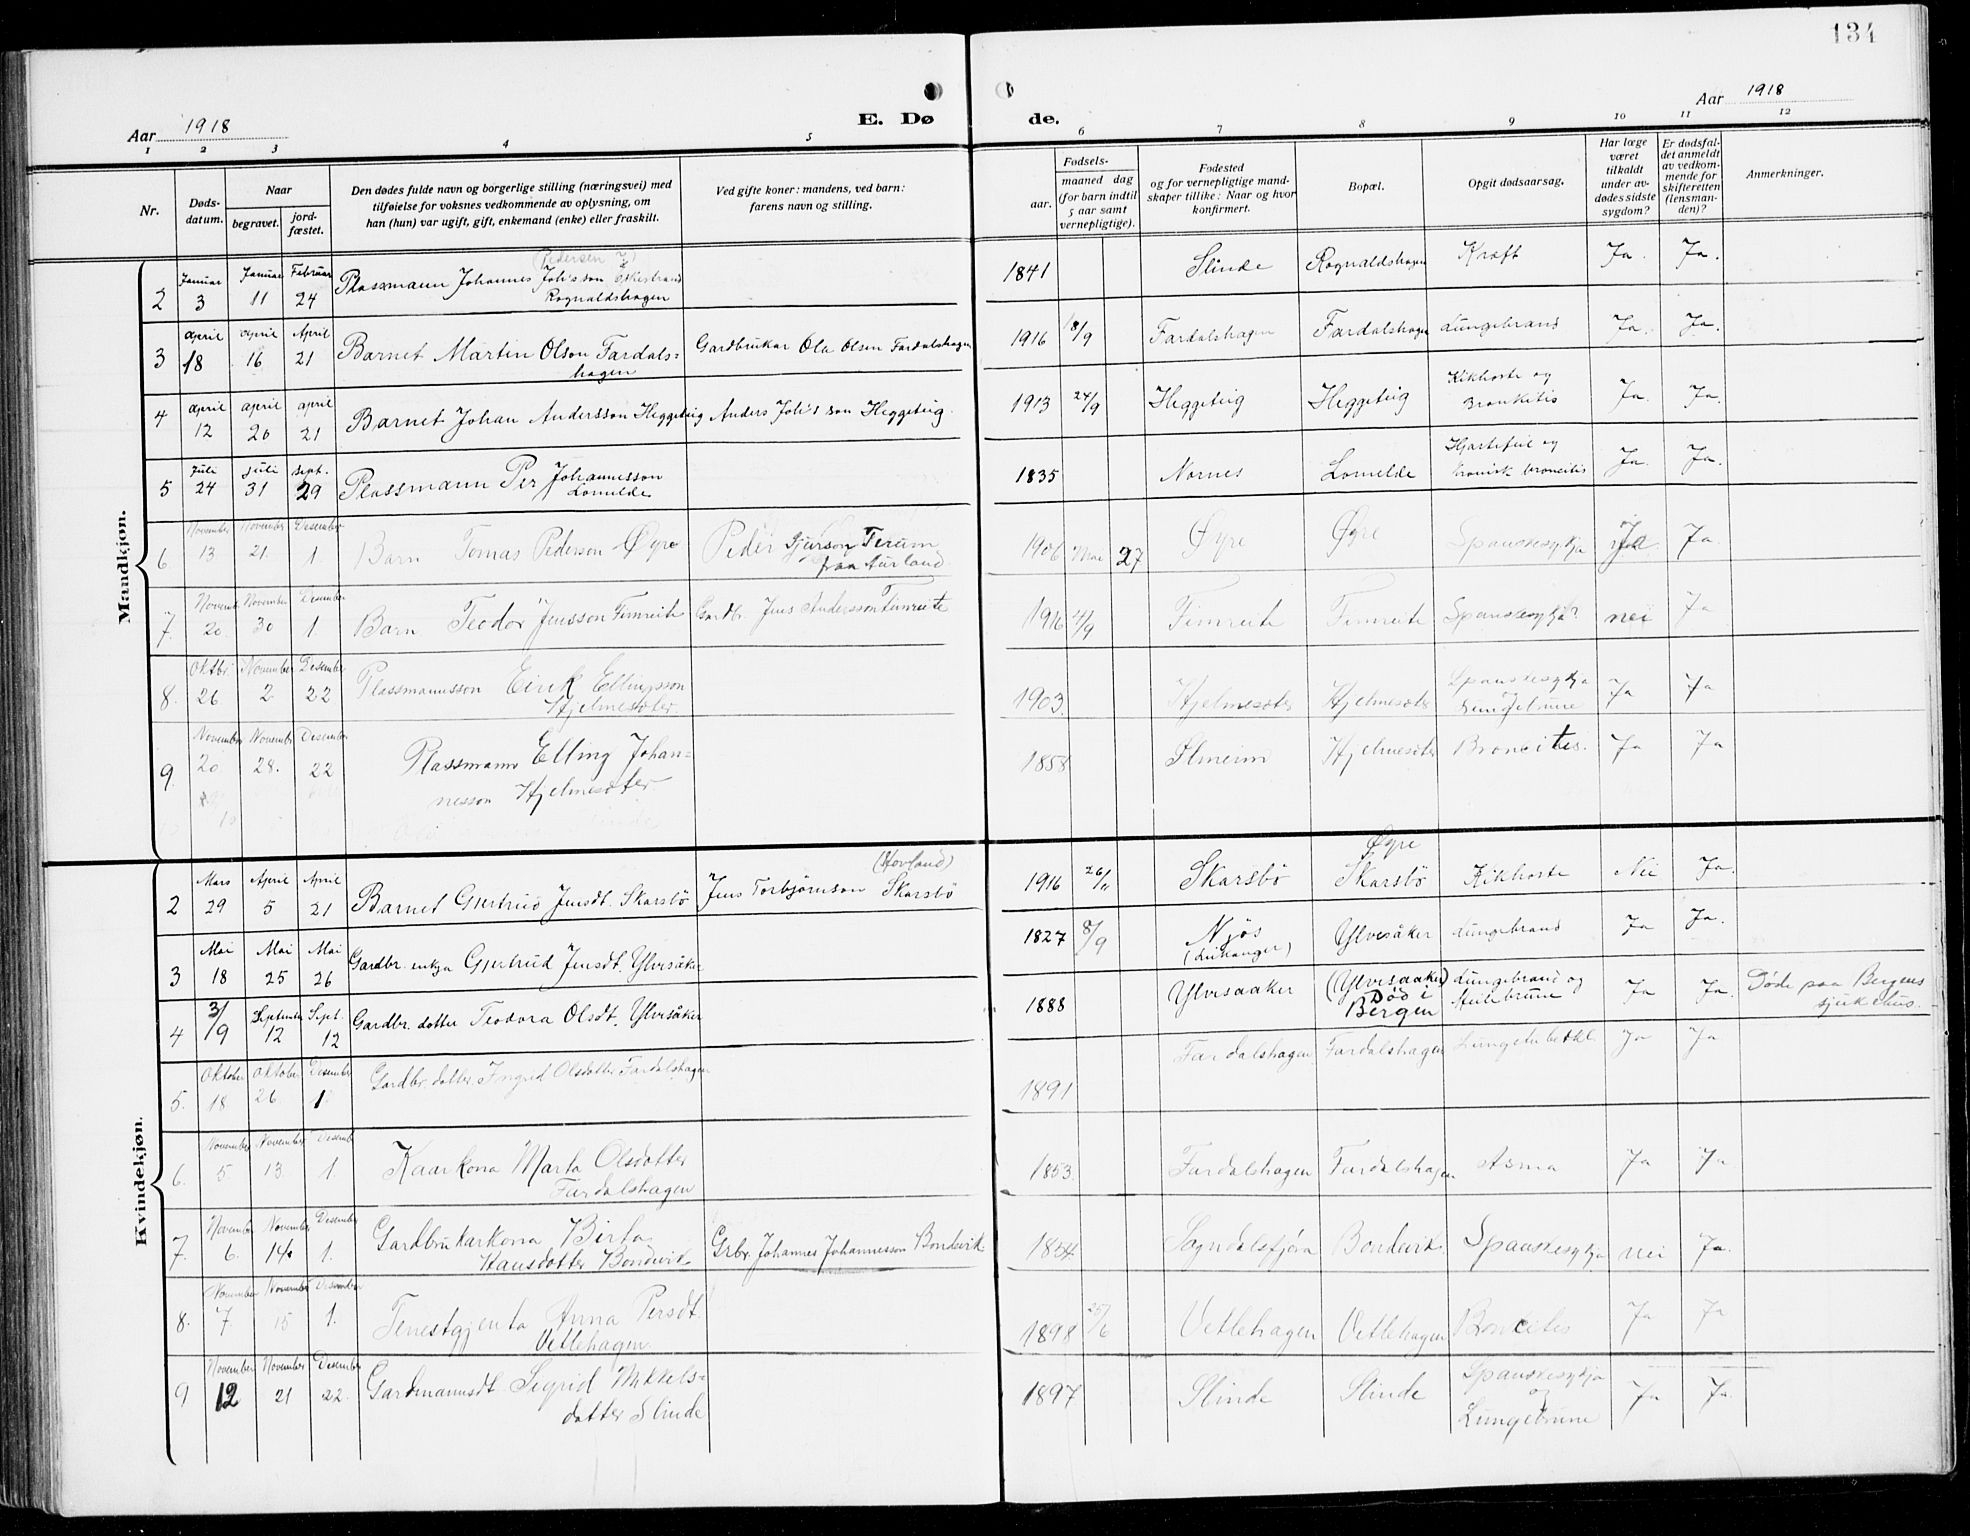 134
Aar 1918
E. Dø
de.
Aar 1918
1 2 3 4 5 6 7 8 9 10 11 12
Nr.
Døds-
datum.
Naar
begravet.
jord-
fæstet.
Den dødes fulde navn og borgerlige stilling (næringsvei) med
tilføielse for voksnes vedkommende av oplysning, om
han (hun) var ugift, gift, enkemand (enke) eller fraskilt.
Ved gifte koner: mandens, ved barn:
farens navn og stilling.
Fødsels-
aar.
maaned dag
(for barn indtil
5 aar samt
vernepligtige).
Fødested
og for vernepligtige mand-
skaper tillike: Naar og hvor
konfirmert.
Bopæl.
Opgit dødsaarsag.
Har læge
været
tilkaldt
under av-
dødes sidste
sygdom?
Er dødsfal-
det anmeldt
av vedkom-
mende for
skifteretten
(lensman-
den)?
Anmerkninger.
Mandkjøn.
2 Januar 3 Januar 11 Februar 24 Plassmann Johannes Joh's son (Pedersen
Rognaldshagen 1841 Slinde Rognaldshagen Kræft Ja. Ja.
3 April 18 April 16 April 21 Barnet Martin Olson Fardals-
hagen Gardbrukar Ola Olsen Fardalshagen 1916 18/9 Fardalshagen Fardalshagen Lungebrand Ja. Ja.
4 April 12 April 20 April 21 Barnet Johan Andersson Heggeteig Anders Joh's son Heggeteig. 1913 24/9 Heggeteig Heggeteig Kikhoste og
Bronkitis Ja. Ja.
5 Juli 24 Juli 31 Sept. 29 Plassmann Per Johannesson
Lomelde 1835 Nornes Lomelde Hjartefeil og
kronisk broncitis Ja. Ja.
6. November 13 November 21. Desember 1. Barn Tomas Pederson Øyre Peder Gjurson Terum
fraa Aurland. 1906 Mai 27 Øyre Øyre Spanskesykja Ja Ja.
7. Novemb. 20. November 30 Desember 1 Barn Teodor Jensson Fimreite Gardbr. Jens Andersson Fimreite 1916 4/9 Fimreite Fimreite Spanskesykja nei Ja
8. Oktbr. 26 November 2. Desember 22 Plassmannsson Eirik Ellingsson
Hjelmesæter 1903. Hjelmesæter Hjelmesæter Spanskesykja
Lungebrune Ja Ja
9. November 20 Novembr 28. Desember 22 Plassmann Elling Johan-
nesson Hjelmesæter 1858 Slneim Hjelmesæter Broncites. Ja Ja
Kvindekjøn.
2 Mars 29 April 5 April 21 Barnet Gjertrud Jensdt. Skarsbö Jens Torbjørnson (Hovland)
Skarsbö 1916 26/11 Skarsbö Øyre
Skarsbö Kikhoste Nei Ja.
3 Mai 18 Mai 25 Mai 26 Gardbr. enkja Gjertrud Jensdt. Ylvisåker 1827 8/9 Njøs
(Leikanger) Ylvesåker Lungebrand Ja Ja.
4 3/9 September 12 Sept. 12 Gardbr. dotter Teodora Olsdt. Ylvisåker 1888 Ylvesaaker (Ylvesaaker)
Død i
Bergen Lungebrand og
Ja Ja. Døde paa Bergens
sjukehus.
5. Oktober 18 Oktober 26. Desember 1. Gardbr. dotter Ingrid Olsdotter Fardalshagen 1891 Fardalshagen Fardalshagen Lungetubekl. Ja Ja
6. November 5 November 13. Desemb. 1. Kaarkona Marta Olsdotter
Fardalshagen 1853. Fardalshagen Fardalshagen Asma Ja Ja
7. November 6. November 14. Desember 1. Gardbrukarkona Birta
Hansdotter Bondevik Grbr. Johannes Johannesson Bondevik 1854. Sogndalsfjøra Bondevik. Spanskesykja nei Ja.
8. November 7. November 15 Desember 1. Tenestgjenta Anna Persdt.
Vetlehagen 1898 25/6 Vetlehagen Vetlehagen Broncites Ja Ja
9 November 12 November 21 Desember 22. Gardmannsdt. Sigrid Mikkels-
dotter Slinde 1897 Slinde Slinde Spanskesykja
og
Lungebrune Ja Ja.